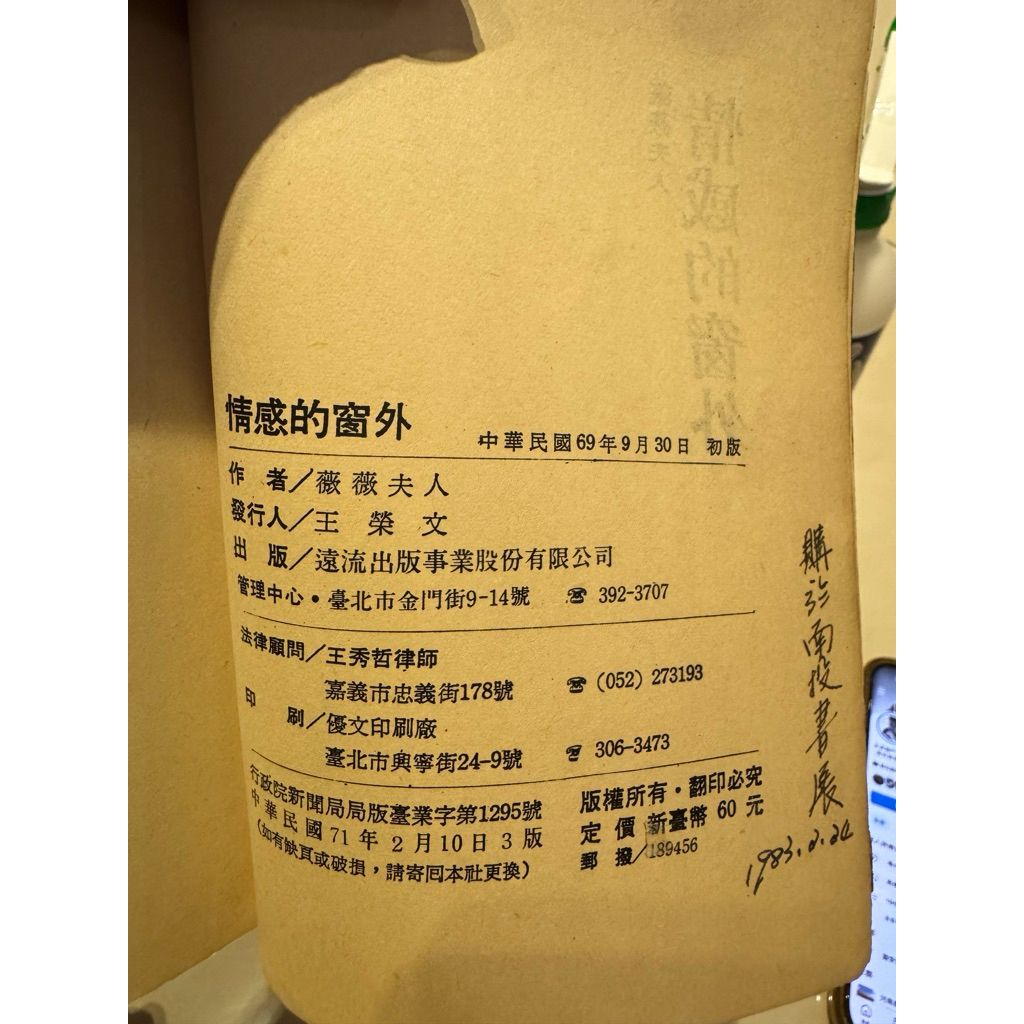 情感的窗外
中華民國69年9月30日 初版
作 者／薇薇夫人
發行人／王榮文
出 版／遠流出版事業股份有限公司
管理中心・臺北市金門街9-14號 ☎ 392-3707
法律顧問／王秀哲律師
嘉義市忠義街178號 ☎ (052) 273193
印 刷／優文印刷廠
臺北市興寧街24-9號 ☎ 306-3473
行政院新聞局局版臺業字第1295號
中華民國71年2月10日3版
(如有缺頁或破損，請寄回本社更換)
版權所有・翻印必究
定價 新臺幣 60 元
郵撥／189456
購於南投書展
1983.2.24